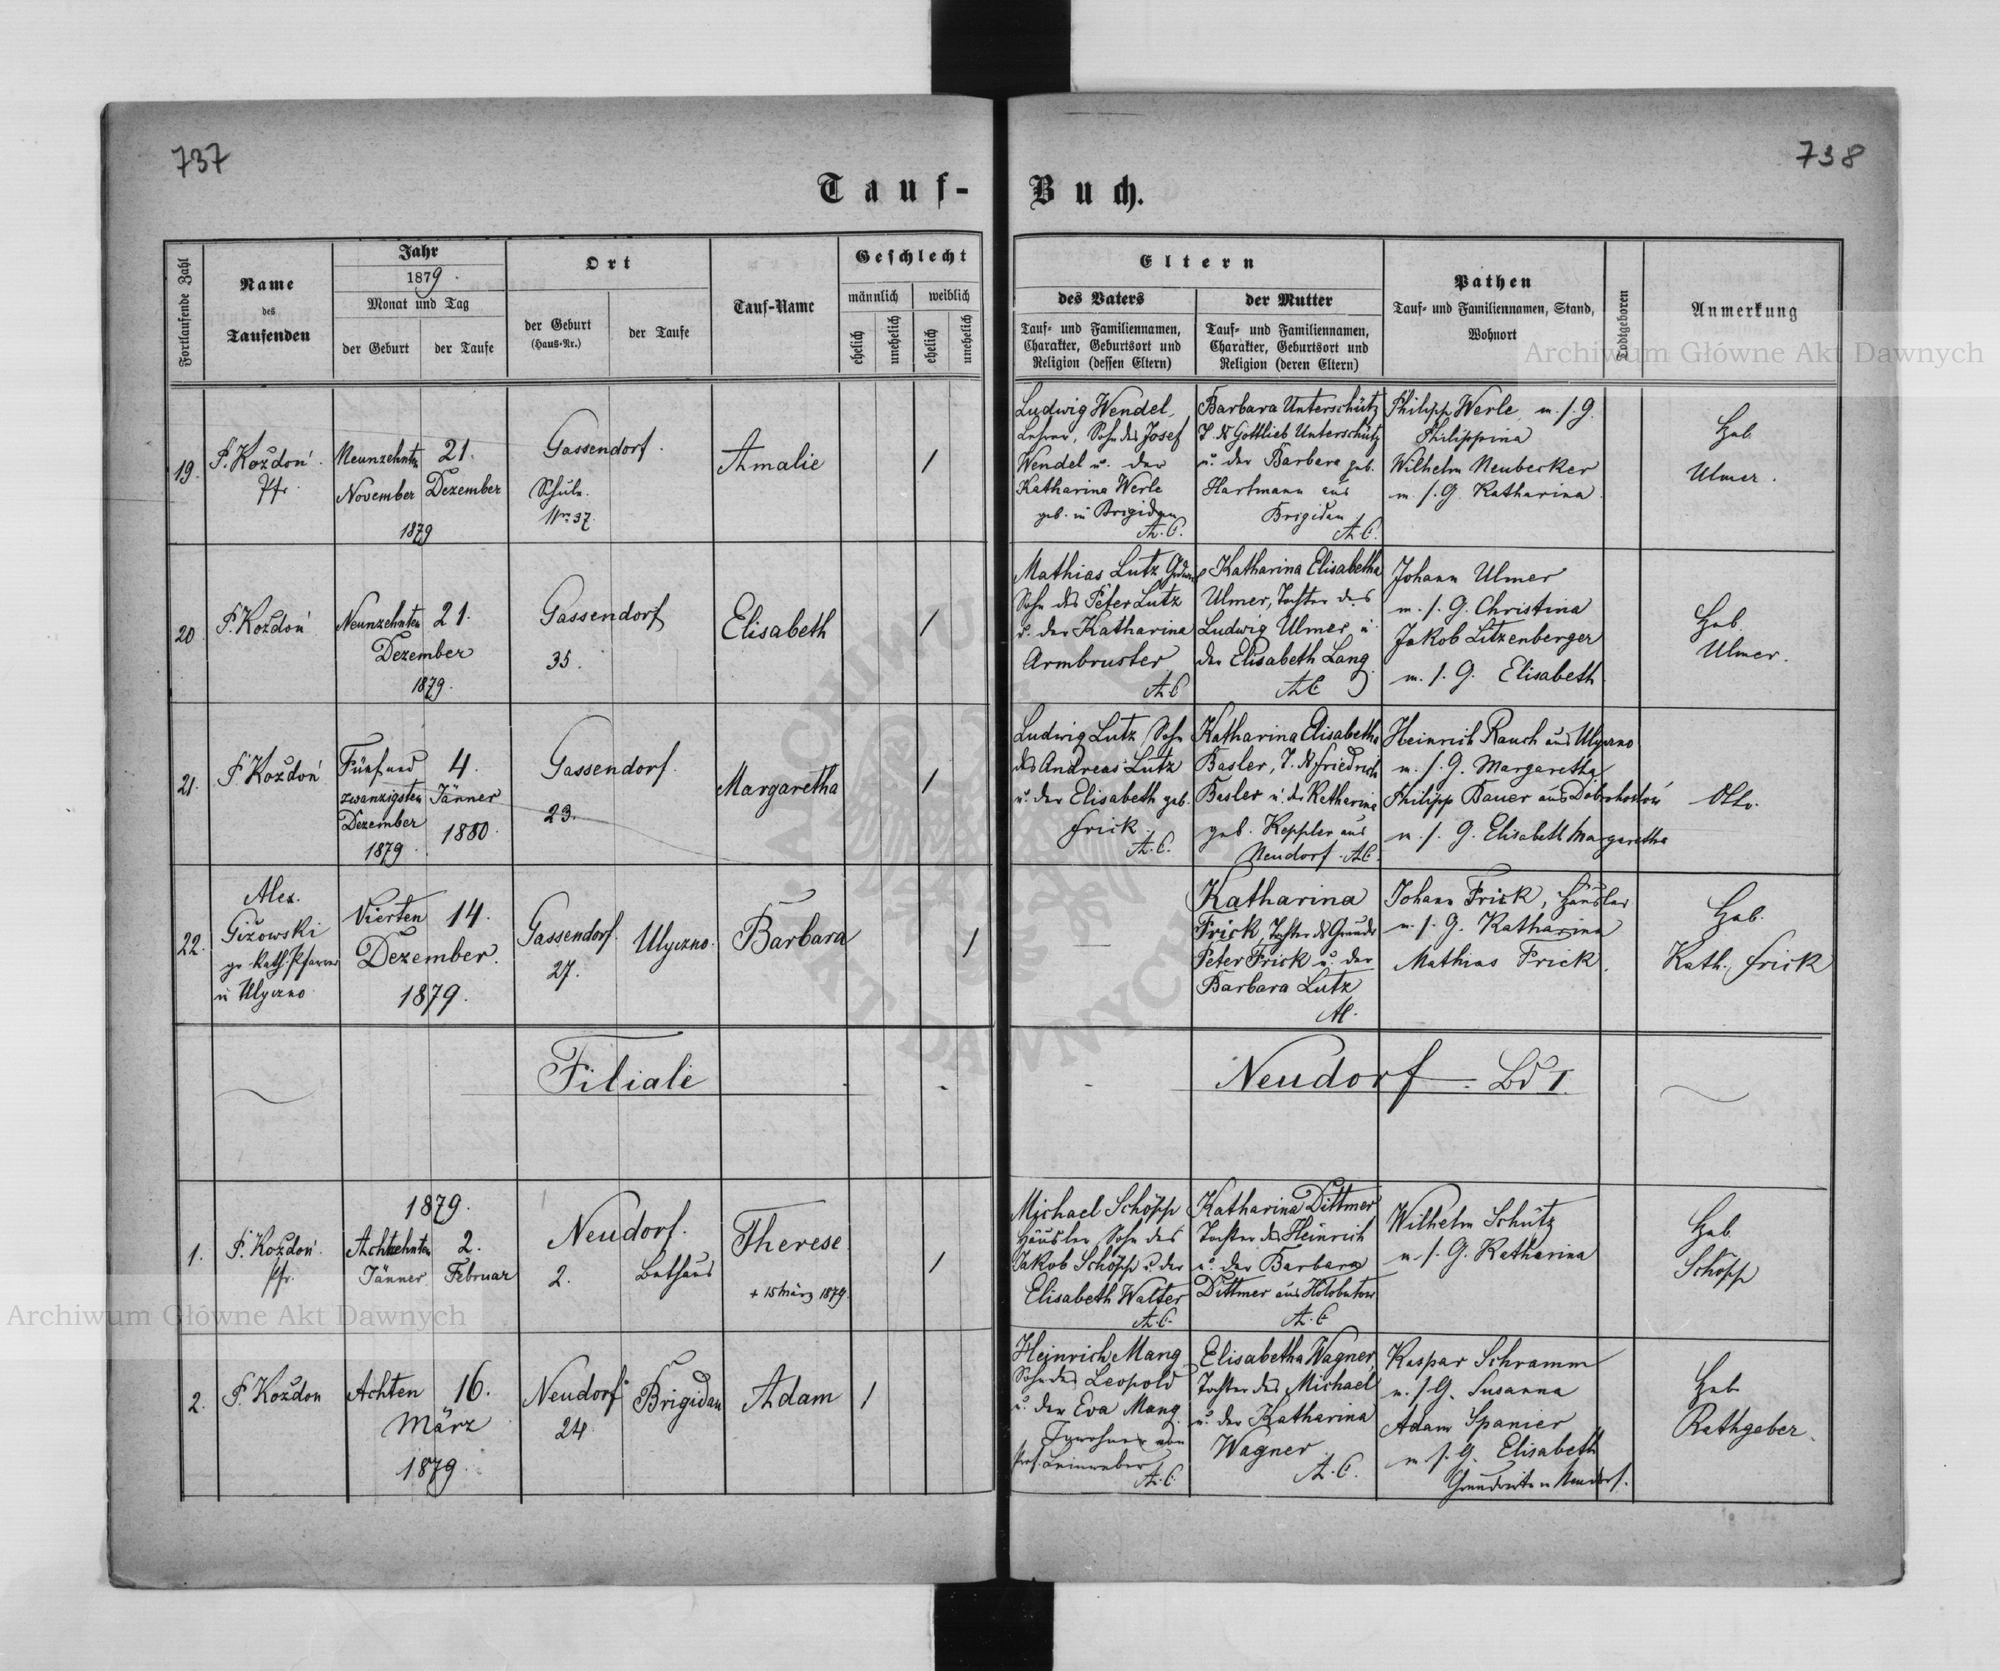 737
738
Tauf-
Buch.
Fortlaufende Zahl
Name
des
Taufenden
Jahr
1879.
Monat und Tag
der Geburt
der Taufe
Ort
der Geburt
(Haus-Nr.)
der Taufe
Tauf-Name
Geschlecht
männlich
weiblich
ehelich
unehelich
ehelich
unehelich
Eltern
des Vaters
Tauf- und Familiennamen,
Charakter, Geburtsort und
Religion (dessen Eltern)
der Mutter
Tauf- und Familiennamen,
Charakter, Geburtsort und
Religion (deren Eltern)
Pathen
Tauf- und Familiennamen, Stand,
Wohnort
Todtgeboren
Anmerkung
19.
F. Kozdoń.
Pfr.
Neunzehnten
November
21.
Dezember
1879
Gassendorf.
Schule.
Nr. 37.
Amalie
/
Ludwig Wendel,
Lehrer, Sohn des Josef
Wendel u. der
Katharina Werle
geb. in Brigidau
A. C.
Barbara Unterschütz
T. d. Gottlieb Unterschütz
u. der Barbara geb.
Hartmann aus
Brigidau
A. C.
Philipp Werle m. s. G.
Philippina
Wilhelm Neubecker
m. s. G. Katharina
Heb.
Ulmer.
20
F. Kozdoń
Neunzehnten
21.
Dezember
1879.
Gassendorf
35.
Elisabeth
/
Mathias Lutz
Sohn des Peter Lutz
u. der Katharina
Armbruster
A. C
Katharina Elisabetha
Ulmer, Tochter des
Ludwig Ulmer u.
der Elisabeth Lang
A. C
Johann Ulmer
m. s. G. Christina
Jakob Litzenberger
m. s. G. Elisabeth
Heb.
Ulmer.
21.
F. Kozdoń
Fünfund
zwanzigsten
Dezember
1879.
4.
Jänner
1880.
Gassendorf.
23.
Margaretha
/
Ludwig Lutz, Sohn
des Andreas Lutz
u. der Elisabeth geb.
Frick.
A. C.
Katharina Elisabetha
Basler, T. d. Friedrich
Basler u. der Katharina
geb. Keppler aus
Neudorf. A.C.
Heinrich Rauch aus Ulyczno
m. s. G. Margaretha
Philipp Bauer aus Dobrohostów
m. s. G. Elisabeth Margaretha
22.
Alex.
Gizowski
gr. kath. Pfarrer
in Ulyczno
Vierten
14.
Dezember.
1879.
Gassendorf.
27.
Ulyczno.
Barbara
/
Katharina
Frick, Tochter des
Peter Frick u. der
Barbara Lutz
Johann Frick, Häusler
m. s. G. Katharina
Mathias Frick
Heb.
Kath. Frick
Filiale
Neudorf. Bd I.
1879.
1.
F. Kozdoń.
Pfr.
Achtzehnten
Jänner
2.
Februar
Neudorf.
2.
Bethaus
Therese
+ 15 März 1879.
/
Michael Schöpp
Häusler, Sohn des
Jakob Schöpp u. der
Elisabeth Walter
A. C.
Katharina Dittmer
Tochter des Heinrich
u. der Barbara
Dittmer aus Hołobutow
A. C
Wilhelm Schütz
m. s. G. Katharina
Heb.
Schöpp
2.
F. Kozdon
Achten
16.
März
1879.
Neudorf
24.
Brigidau
Adam
/
Heinrich Mang
Sohn des Leopold
u. der Eva Mang
A. C.
Elisabetha Wagner,
Tochter des Michael
u. der Katharina
Wagner.
A. C.
Kaspar Schramm
m. s. G. Susanna
Adam Spanier
m. s. G. Elisabeth
Heb
Rathgeber.
Archiwum Główne Akt Dawnych
Archiwum Główne Akt Dawnych